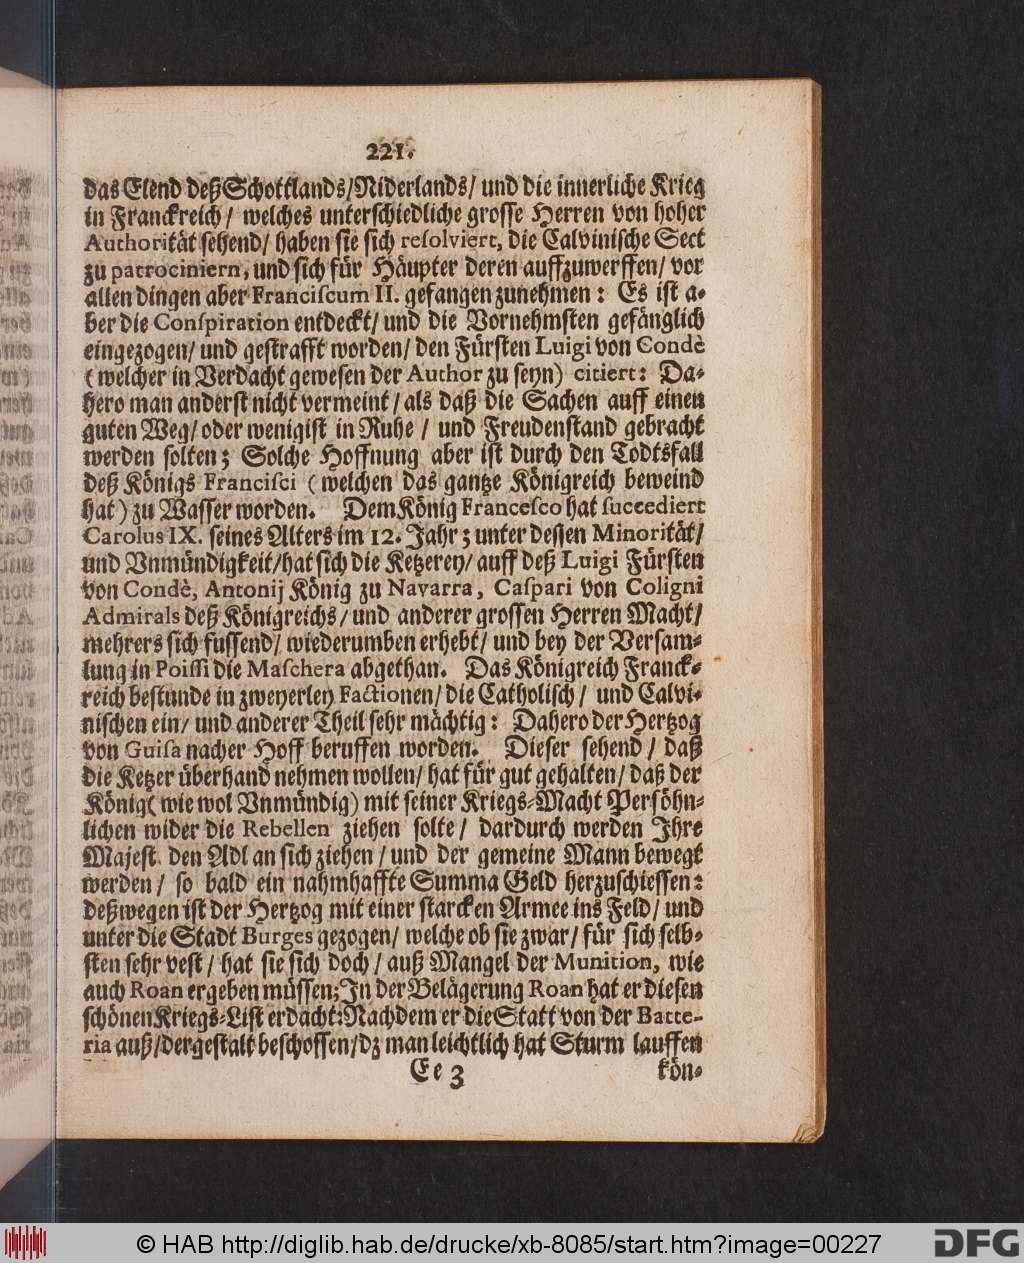 221.
das Elend deß Schottlands/Niderlands/ und die innerliche Krieg
in Franckreich / welches unterschiedliche grosse Herren von hoher
Authorität sehend/ haben sie sich resolviert, die Calvinische Sect
zu patrociniern, und sich für Häupter deren auffzuwerffen/ vor
allen dingen aber Franciscum II. gefangen zunehmen: Es ist a-
ber die Conspiration entdeckt/ und die Vornehmsten gefänglich
eingezogen/ und gestrafft worden/ den Fürsten Luigi von Condè
(welcher in Verdacht gewesen der Author zu seyn) citiert: Da-
hero man anderst nicht vermeint / als daß die Sachen auff einen
guten Weg/ oder wenigist in Ruhe / und Freudenstand gebracht
werden solten; Solche Hoffnung aber ist durch den Todtsfall
deß Königs Francisci (welchen das gantze Königreich beweind
hat) zu Wasser worden. Dem König Francesco hat succediert
Carolus IX. seines Alters im 12. Jahr; unter dessen Minorität/
und Vnmündigkeit/hat sich die Ketzerey/ auff deß Luigi Fürsten
von Condè, Antonij König zu Navarra, Caspari von Coligni
Admirals deß Königreichs/ und anderer grossen Herren Macht/
mehrers sich fussend/ wiederumben erhebt/ und bey der Versam-
lung in Poissi die Maschera abgethan. Das Königreich Franck-
reich bestunde in zweyerley Factionen/ die Catholisch/ und Calvi-
nischen ein/ und anderer Theil sehr mächtig: Dahero der Hertzog
von Guisa nacher Hoff beruffen worden. Dieser sehend/ daß
die Ketzer überhand nehmen wollen/ hat für gut gehalten/ daß der
König( wie wol Vnmündig) mit seiner Kriegs-Macht Persöhn-
lichen wider die Rebellen ziehen solte/ dardurch werden Ihre
Majest. den Adl an sich ziehen / und der gemeine Mann bewegt
werden/ so bald ein nahmhaffte Summa Geld herzuschiessen:
deßwegen ist der Hertzog mit einer starcken Armee ins Feld/ und
unter die Stadt Burges gezogen/ welche ob sie zwar/ für sich selb-
sten sehr vest/ hat sie sich doch / auß Mangel der Munition, wie
auch Roan ergeben müssen; In der Belägerung Roan hat er diesen
schönen Kriegs-List erdacht: Nachdem er die Statt von der Batte-
ria auß/dergestalt beschossen/dz man leichtlich hat Sturm lauffen
Ee 3 kön-
© HAB http://diglib.hab.de/drucke/xb-8085/start.htm?image=00227
DFG